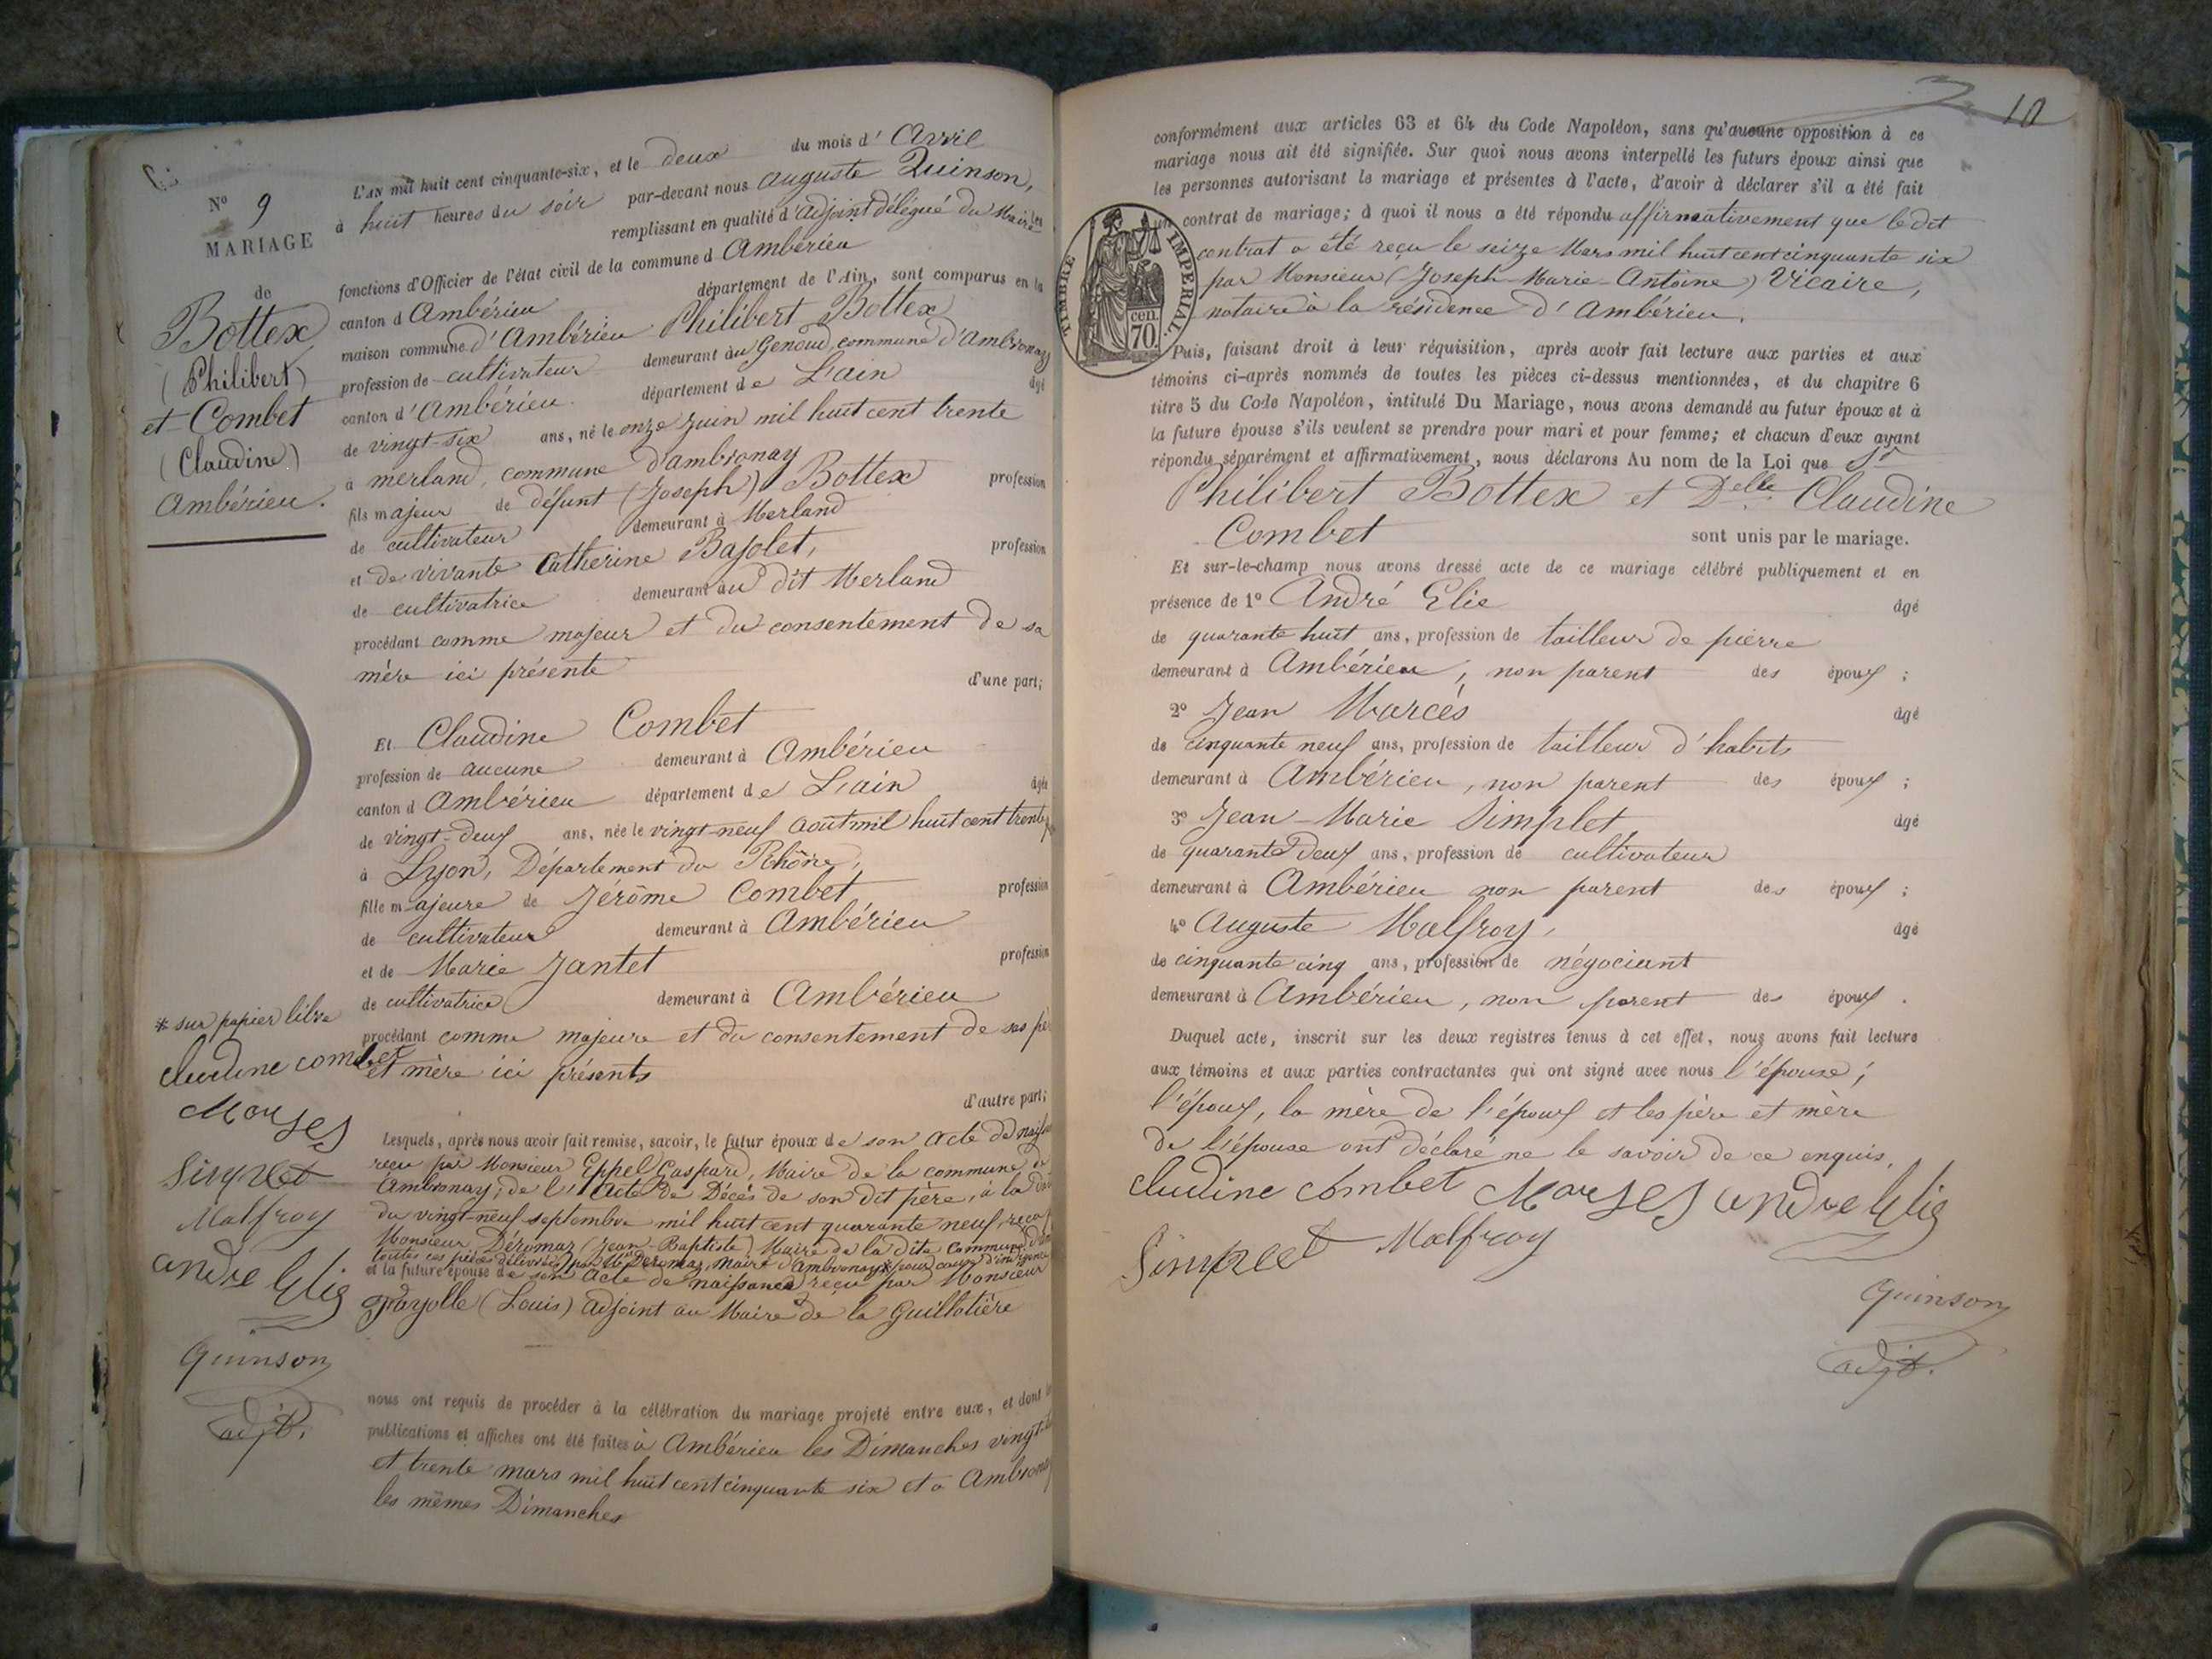 Nº 9
MARIAGE
de
Bottex
(Philibert)
et Combet
(Claudine)
Ambérieu.
L'AN mil huit cent cinquante-six, et le deux du mois d'Avril
à huit heures du soir par-devant nous Auguste Quinson,
remplissant en qualité d'adjoint délégué du Maire les
fonctions d'Officier de l'état civil de la commune d Ambérieu
canton d Ambérieu département de l'Ain, sont comparus en la
maison commune d'Ambérieu Philibert Bottex
profession de cultivateur demeurant au Genoud, commune d'Ambronay
canton d'Ambérieu département de L'ain âgé
de vingt-six ans, né le onze Juin mil huit cent trente
à merland, commune d'ambronay
fils majeur de défunt (Joseph) Bottex profession
de cultivateur demeurant à Merland
et de vivante Catherine Bajolet, profession
de cultivatrice demeurant au dit Merland
procédant comme majeur et du consentement de sa
mère ici présente d'une part;
Et Claudine Combet
profession de aucune demeurant à Ambérieu
canton d Ambérieu département de L'ain âgée
de vingt-deux ans, née le vingt-neuf août mil huit cent trente
à Lyon, Département du Rhône,
fille majeure de Jérôme Combet profession
de cultivateur demeurant à Ambérieu
et de Marie Jantet profession
de cultivatrice demeurant à Ambérieu
procédant comme majeure et du consentement de ses
et mère ici présents
d'autre part;
Lesquels, après nous avoir fait remise, savoir, le futur époux de son acte de
reçu par Monsieur Eppel Gaspard, Maire de la commune de
Ambronay; de l'acte de Décès de son dit père, à la
du vingt-neuf septembre mil huit cent quarante neuf, reçu
Monsieur Déromas (Jean-Baptiste) Maire de la dite commune
toutes ces pièces délivrées par Mr Deromas, Maire d'Ambronay* pour cause d'indigence
et la future épouse de son acte de naissance reçu par Monsieur
(Louis) adjoint au Maire de la Guillotière
nous ont requis de procéder à la célébration du mariage projeté entre eux, et dont
publications et affiches ont été faites à Ambérieu les Dimanches vingt
et trente mars mil huit cent cinquante six et à Ambronay
les mêmes Dimanches
* sur papier libre
cludine combet
Marses
Simplet
Malfroy
andre Elie
Quinson
adjt.
10
conformément aux articles 63 et 64 du Code Napoléon, sans qu'aucune opposition à ce
mariage nous ait été signifiée. Sur quoi nous avons interpellé les futurs époux ainsi que
les personnes autorisant le mariage et présentes à l'acte, d'avoir à déclarer s'il a été fait
un contrat de mariage; à quoi il nous a été répondu affirmativement que le dit
contrat a été reçu le seize Mars mil huit cent cinquante six
par Monsieur (Joseph-Marie-Antoine) Vicaire,
notaire à la résidence d'Ambérieu.
TIMBRE IMPERIAL.
cen. 70.
Puis, faisant droit à leur réquisition, après avoir fait lecture aux parties et aux
témoins ci-après nommés de toutes les pièces ci-dessus mentionnées, et du chapitre 6
titre 5 du Code Napoléon, intitulé Du Mariage, nous avons demandé au futur époux et à
la future épouse s'ils veulent se prendre pour mari et pour femme; et chacun d'eux ayant
répondu séparément et affirmativement, nous déclarons Au nom de la Loi que Sr
Philibert Bottex et Delle Claudine
Combet sont unis par le mariage.
Et sur-le-champ nous avons dressé acte de ce mariage célébré publiquement et en
présence de 1º André Elie âgé
de quarante huit ans, profession de tailleur de pierre
demeurant à Ambérieu, non parent des époux;
2º Jean Marcès âgé
de cinquante neuf ans, profession de tailleur d'habits
demeurant à Ambérieu, non parent des époux;
3º Jean-Marie Simplet âgé
de quarante deux ans, profession de cultivateur
demeurant à Ambérieu non parent des époux;
4º Auguste Malfroy, âgé
de cinquante cinq ans, profession de négociant
demeurant à Ambérieu, non parent des époux.
Duquel acte, inscrit sur les deux registres tenus à cet effet, nous avons fait lecture
aux témoins et aux parties contractantes qui ont signé avec nous l'épouse;
l'époux, la mère de l'époux et les père et mère
de l'épouse ont déclaré ne le savoir de ce enquis.
cludine combet Marses andre Elie
Simplet Malfroy
Quinson
adjt.